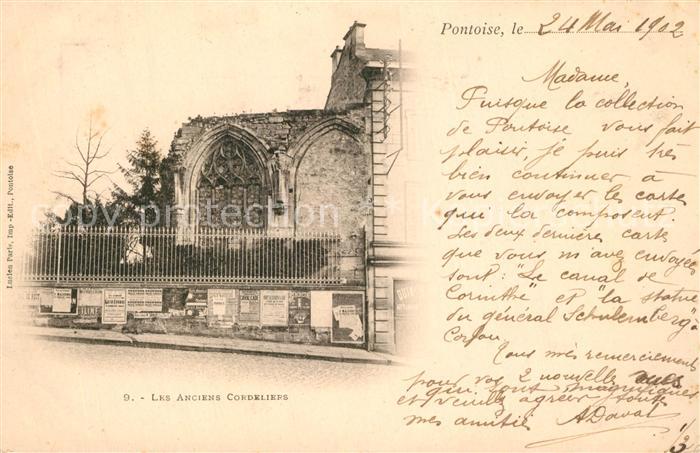 Pontoise, le 24 Mai 1902
Madame,
Puisque la collection
de Pontoise vous fait
plaisir, je puis très
bien continuer à
vous envoyer les carte
qui la composent.
Les deux dernière carte
que vous m'avez envoyées
sont : "Le canal de
Corinthe" et "la statue
du général Schulemberg"
Corfou.
Tous mes remerciements
pour vos 2 nouvelle vues
qui sont magnifiques
et veuillez agréer toute
mes amitiés ADaval
Lucien Paris, Imp.-Edit., Pontoise
9. - LES ANCIENS CORDELIERS
© veux & chercher